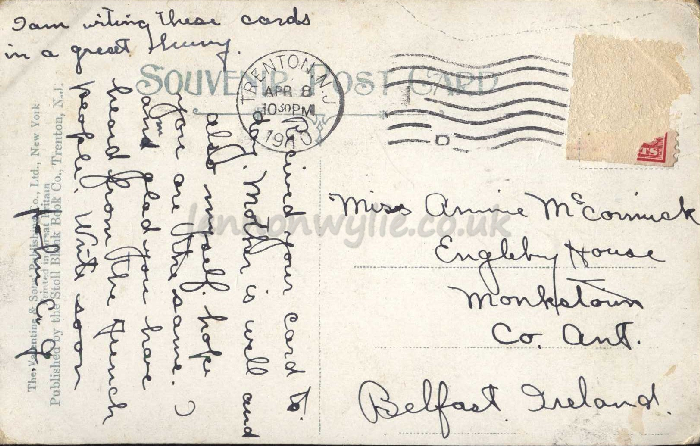 I am writing these cards
in a great hurry.
SOUVENIR POST CARD
TRENTON, N.J.
APR 8
10 30 PM
1910
Received your card to
day. Mother is well and
also myself. hope
you are the same. I
am glad you have
heard from the French
people. Write soon
The Valentine & Sons Publishing Co., Ltd., New York
Printed in Great Britain
Published by the Stoll Blank Book Co., Trenton, N.J.
Miss Annie McCormick
Engleby House
Monkstown
Co. Ant.
Belfast, Ireland.
lennonwylie.co.uk
TS